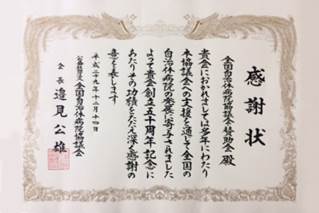 感謝状
全国自治体病院協議会賛助会 殿
貴会におかれましては多年にわたり
本協議会への支援を通じて全国の
自治体病院の発展に寄与されました
よって貴会創立五十周年記念に
あたりその功績をたたえ深く感謝の
意を表します
平成二十九年十二月十四日
公益社団法人 全国自治体病院協議会
会長 邉見公雄